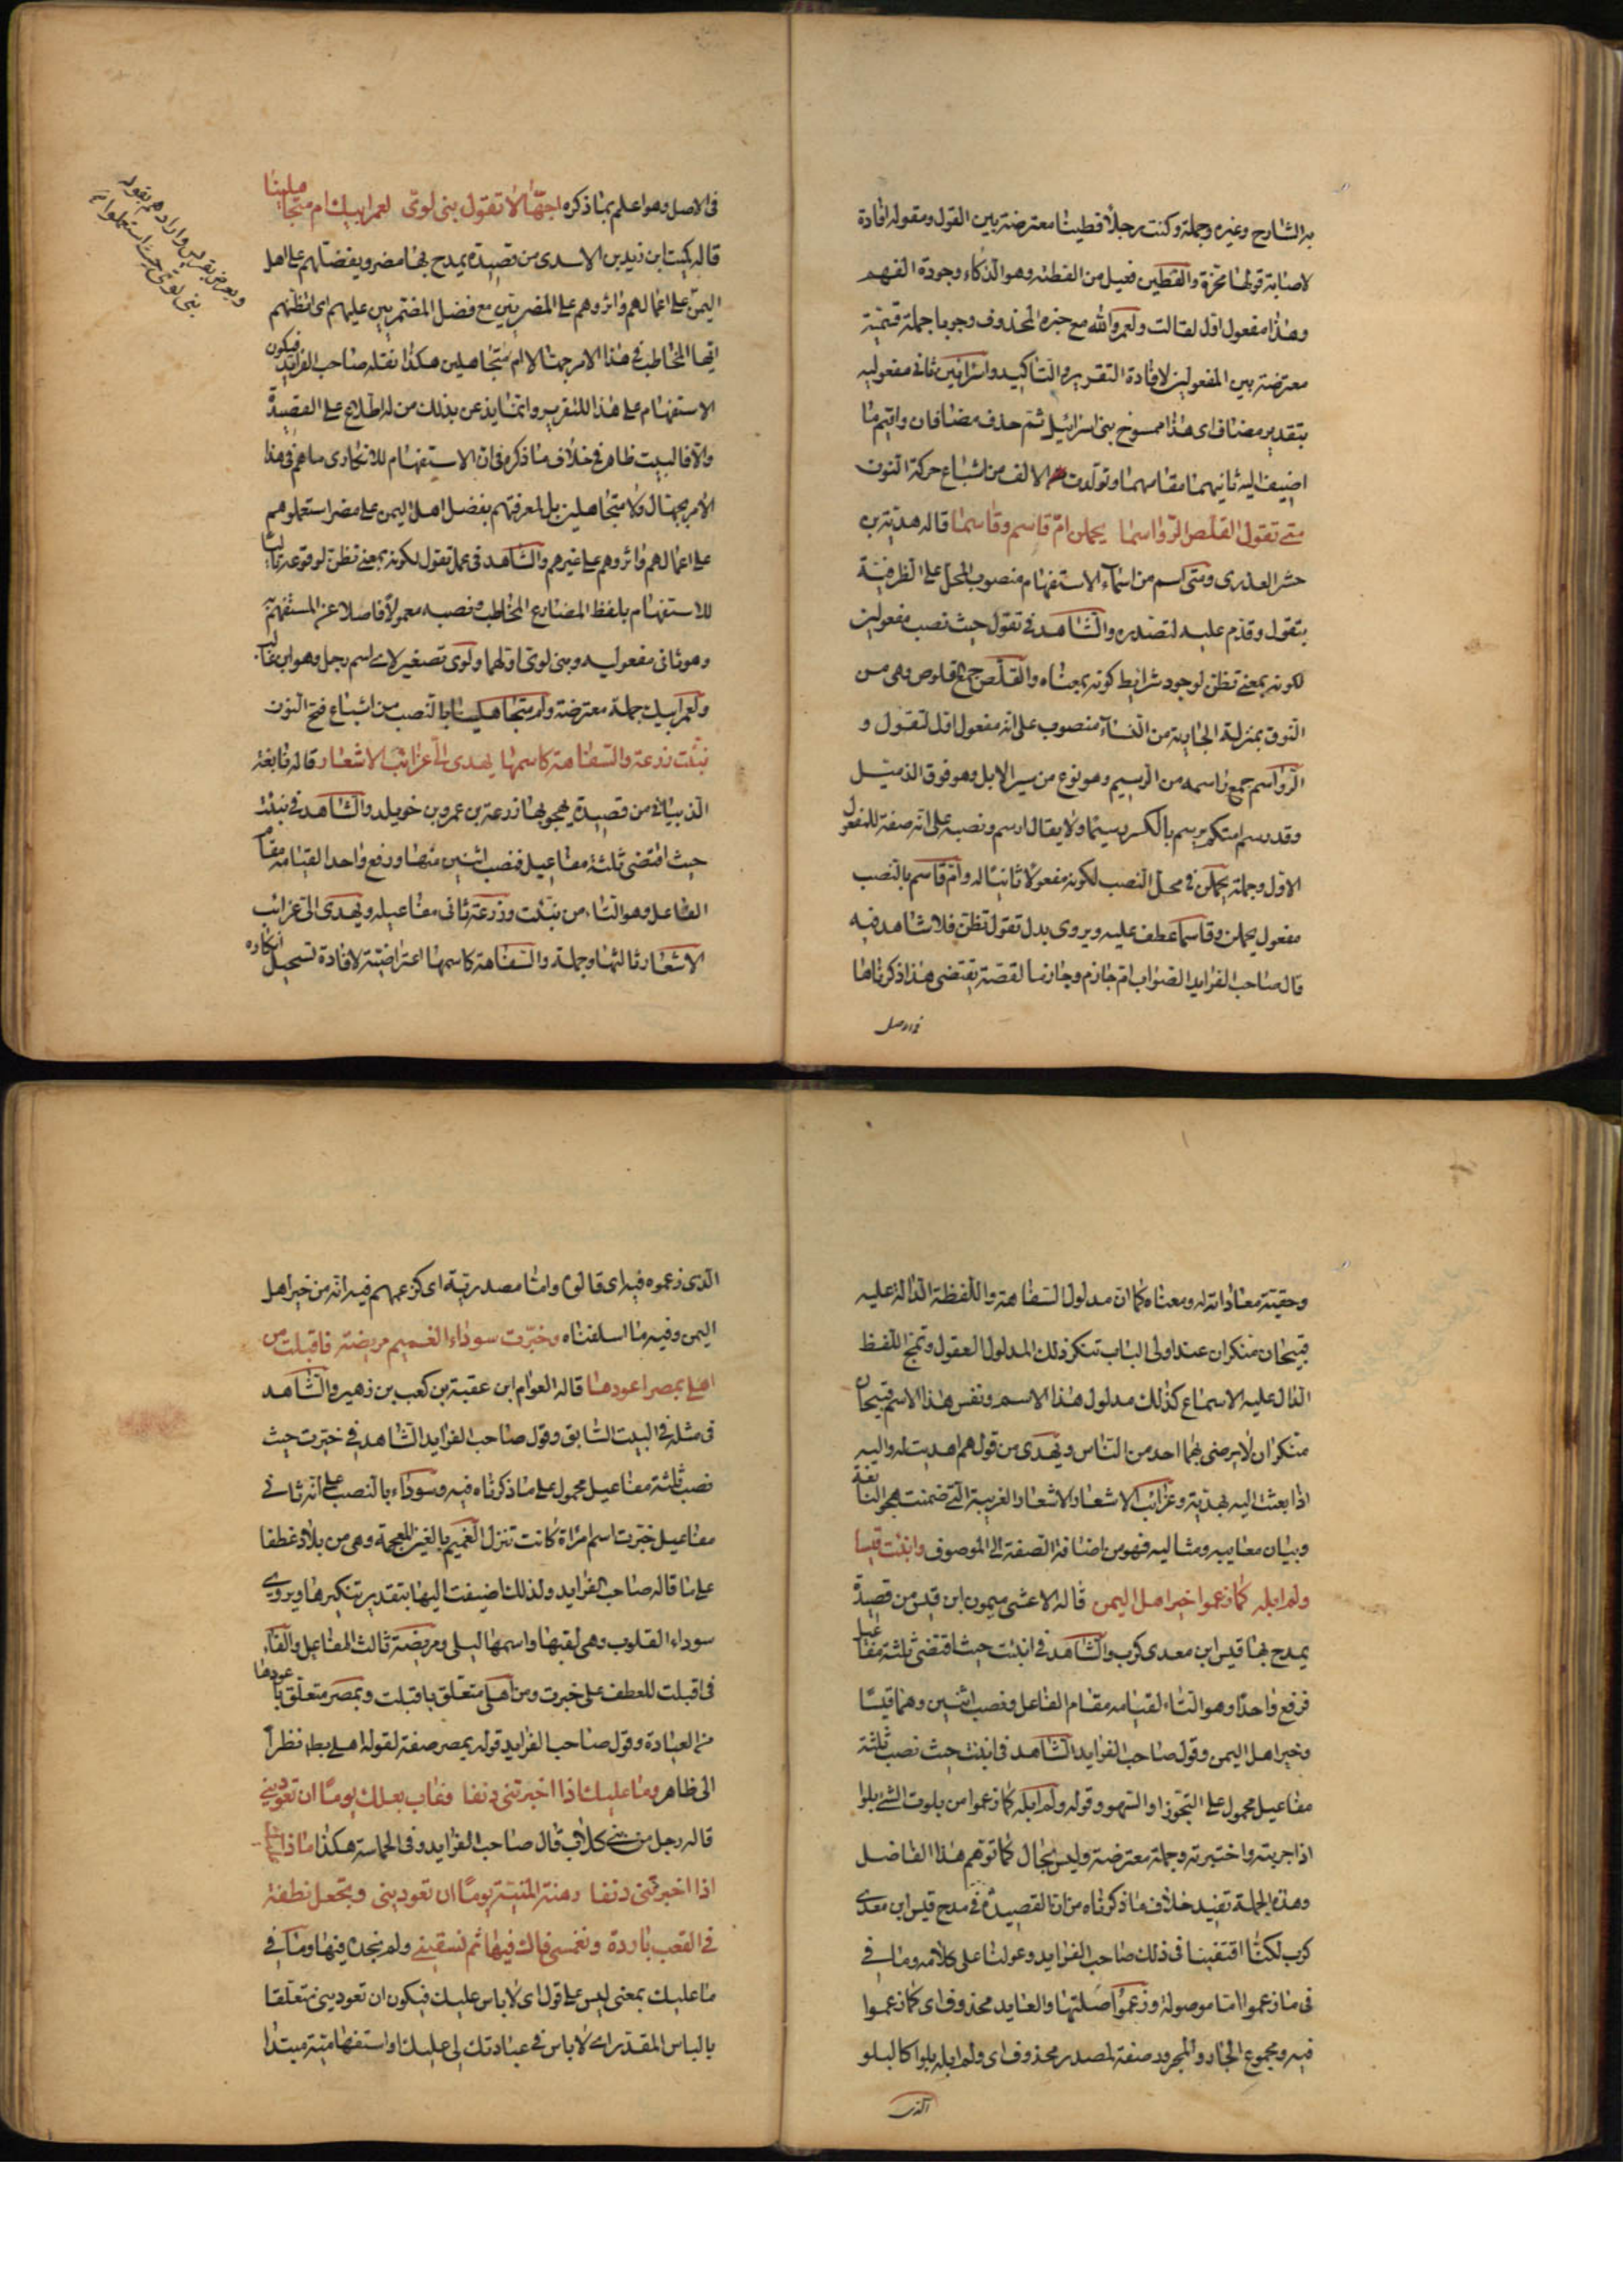 به الشارح وغيره وجملة وكنت رجلاً فطينا معترضة بين القول ومقوله افادة
لاصابة قولها تحرة والفطين فعيل من الفطنه وهو الذكاء وجودة الفهم
وهذا مفعول اول لقالت ولعمر والله مع خبره المحذوف وجوبا جملة قسمية
معترضة بين المفعولين لافادة التقرير والتاكيد واسرائين ثانى مفعوليه
بتقدير مضاف اى هذا ممسوخ بنى اسرائيل ثم حذف مضافان واقيم ما
اضيف اليه ثانيهما مقامهما وتولدت الالف من اشباع حركة النون
متى تقول القلص الرواسما يحملن ام قاسم وقاسما قاله هدبة بن
خشر العذرى ومتى اسم من اسماء الاستفهام منصوب المحل على الظرفية
بتقول وقدم عليه لتصدره والشاهد فى تقول حيث نصب مفعولين
لكونه بمعنى تظن لوجود شرائط كونه بمعناه والقلص جمع قلوص وهى من
النوق بمنزلة الجارية من النساء منصوب على انه مفعول اول لتقول و
الرواسم جمع راسمه من الرسيم وهو نوع من سير الابل وهو فوق الذميل
وقد رسم يرسم بالكسر رسيما ولا يقال ارسم ونصبه على انه صفة للمفعول
الاول وجملة يحملن فى محل النصب لكونه مفعولاً ثانيا له وام قاسم بالنصب
مفعول يحملن وقاسما عطف عليه ويروى بدل تقول تظن فلا شاهد فيه
قال صاحب الفرايد الصواب ام حازم وحازما لقصة يقتضى هذا ذكرناها
فى الاصل
فى الاصل وهو اعلم بما ذكره اجهّالا تقول بنى لوى لعمر ابيك ام متجاهلينا
قاله كميت ابن زيد بن الاسدى من قصيدة يمدح بها مضر ويفضلهم على اهل
اليمن على اعمالهم واثروهم على المضريين مع فضل المضريين عليهم اى اتظنهم
ايها المخاطب فى هذا الامر جهالا ام متجاهلين هكذا نقله صاحب الفرايد فيكون
الاستفهام على هذا للتقرير وانما يذعن بذلك من له اطلاع على القصيدة
والا فالبيت ظاهر فى خلاف ما ذكره فى ان الاستفهام للانكارى ما هم فى هذا
الامر بجهال ولا متجاهلين بل لمعرفتهم بفضل اهل اليمن على مضر استعملوهم
على اعمالهم واثروهم على غيرهم والشاهد فى عمل تقول لكونه بمعنى تظن لوقوعه تاليا
للاستفهام بلفظ المضارع المخاطب ونصبه معمولاً فاصلا عن المستفهم به
وهو ثانى مفعوليه وبنى لوى اولهما ولوى تصغير لاى اسم رجل وهو ابن غالب
ولعمر ابيك جملة معترضة وام متجاهلينا بالنصب من اشباع فتح النون
نبئت زرعة والسفاهة كاسمها يهدى الى غرائب الاشعار قاله نابغة
الذبيانى من قصيدة يهجو بها زرعة بن عمرو بن خويلد والشاهد فى نبئت
حيث اقتضى ثلثة مفاعيل فنصب اثنين منها ورفع واحدا لقيامه مقام
الفاعل وهو التاء من نبئت وزرعة ثانى مفاعيله ويهدى الى غرائب
الاشعار ثالثها وجملة والسفاهة كاسمها اعتراضية لافادة تسجيل انكاره
ويعرض بقريش واراد هم بقوله
بنى لوى حيث استعملوا اه
وحقيته معاداته له ومعناه كما ان مدلول السفاهة واللفظة الدالة عليه
قبيحان منكران عند اولى الباب تنكر ذلك المدلول العقول وتمج اللفظ
الدال عليه الاسماع كذلك مدلول هذا الاسم ونفس هذا الاسم قبيحان
منكران لا يرضى بهما احد من الناس ويهدى من قولهم اهديت له واليه
اذا بعث اليه بهدية وغرائب الاشعار الاشعار الغريبة التى ضمنت هجو النابغة
وبيان معايبه ومثالبه فهو من اضافة الصفة الى الموصوف وانبئت قيسا
ولم ابله كما زعموا خير اهل اليمن قاله الاعشى ميمون ابن قيس من قصيدة
يمدح بها قيس ابن معدى كرب والشاهد فى انبئت حيث اقتضى ثلثة مفاعيل
فرفع واحدا وهو التاء لقيامه مقام الفاعل ونصب اثنين وهما قيسًا
وخير اهل اليمن وقول صاحب الفرايد الشاهد فى انبئت حيث نصب ثلثة
مفاعيل محمول على التجوز او السهو وقوله ولم ابله كما زعموا من بلوت الشئ بلوا
اذا جربته واختبرته وجملة معترضة وليس بحال كما توهم هذا الفاضل
وهذه الجملة تفيد خلاف ما ذكرناه من ان القصيدة فى مدح قيس ابن معدى
كرب لكنا اقتفينا فى ذلك صاحب الفرايد وعولنا على كلامه وما فى
فى ما زعموا اما موصولة وزعموا صلتها والعايد محذوف اى كما زعموا
فيه ومجموع الجار والمجرور صفة لمصدر محذوف اى ولم ابله بلوا كالبلو
الذى
الذى زعموه فيه اى قالوه واما مصدرية اى كزعمهم فيه انه من خير اهل
اليمن وفيه ما اسلفناه وخبرت سوداء الغميم مريضة فاقبلت من
اهلى بمصر اعودها قاله العوام ابن عقبة بن كعب بن زهير والشاهد
فى مثله فى البيت السابق وقول صاحب الفرايد الشاهد فى خبرت حيث
نصب ثلثة مفاعيل محمول على ما ذكرناه فيه وسوداء بالنصب على انه ثانى
مفاعيل خبرت اسم امراة كانت تنزل الغميم بالغين المعجمة وهى من بلاد غطفا
على ما قاله صاحب الفرايد ولذلك اضيفت اليها بتقدير تنكيرها ويروى
سوداء القلوب وهى لقبها واسمها ليلى ومريضة ثالث المفاعيل والفاء
فى اقبلت للعطف على خبرت ومن اهلى متعلق باقبلت وبمصر متعلق باعودها
من العيادة وقول صاحب الفرايد قوله بمصر صفة لقوله اهلى نظرا
الى ظاهر وما عليك اذا اخبرتنى دنفا وغاب بعلك يوما ان تعودينى
قاله رجل من بنى كلاب قال صاحب الفرايد وفى الحماسة هكذا ماذا عليك
اذا اخبرتنى دنفا رهن المنية يومًا ان تعودينى وتجعلى نطفة
فى القعب باردة وتغمسى فاك فيها ثم تسقينى ولم نجده فيها وما فى
ما عليك بمعنى ليس على قول اى لا باس عليك فيكون ان تعودينى متعلقا
بالباس المقدر اى لا باس فى عيادتك لى عليك واستفهامية مبتدا